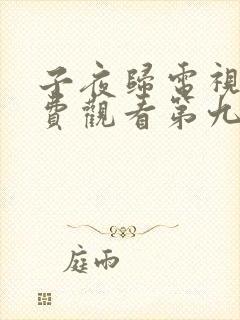 子夜歸電視
費觀看第九
庭雨